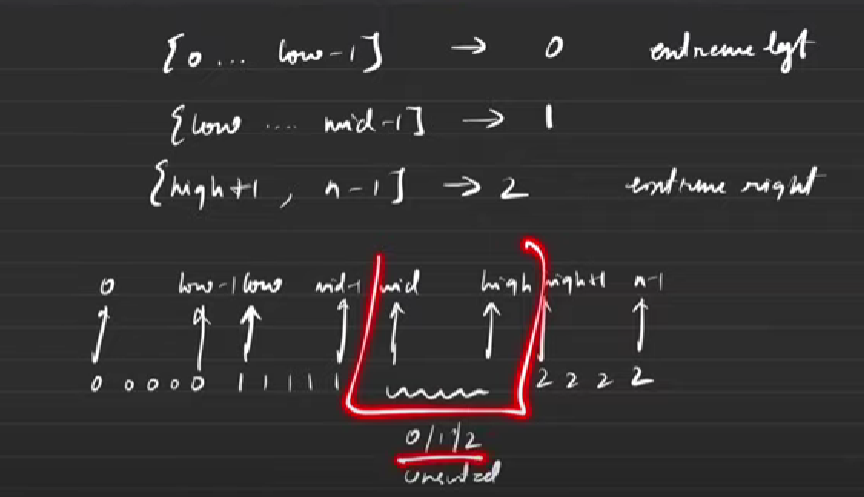 [0 ... low-1] → 0 extreme left
[low .... mid-1] → 1
[high+1, n-1] → 2 extreme right
0 low-1 low mid-1 mid high high+1 n-1
0 0 0 0 0 1 1 1 1 1 2 2 2 2
0/1/2
unsorted